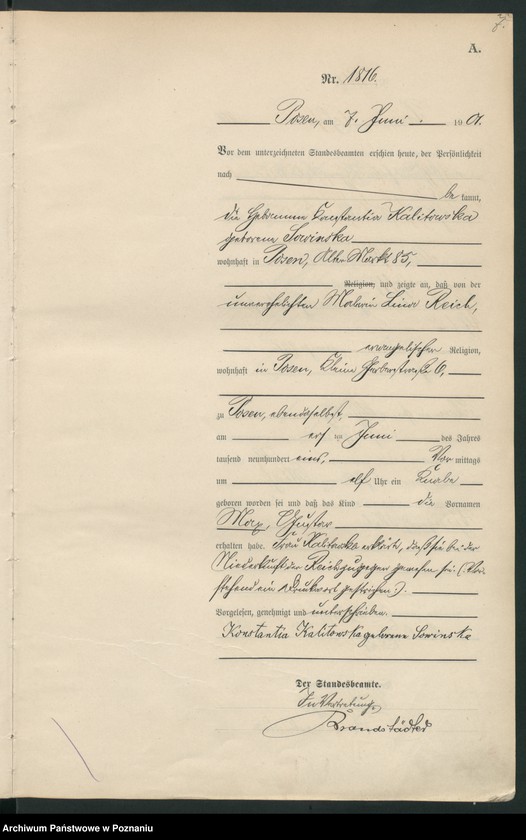 A.
Nr. 1816.
Posen, am 7. Juni 1901.
Vor dem unterzeichneten Standesbeamten erschien heute, der Persönlichkeit
nach
be kannt,
die Hebamme Konstantia Kalitowska
geborene Sowinska
wohnhaft in Posen, Alter Markt 85,
Religion, und zeigte an, daß von der
unverehelichten Malerin Reich,
evangelischer Religion,
wohnhaft in Posen, Kleine Gerberstraße 6,
zu Posen, ebendaselbst,
am ersten Juni des Jahres
tausend neunhundert eins, Vor mittags
um elf Uhr ein Knabe
geboren worden sei und daß das Kind die Vornamen
Max Gustav
erhalten habe. Frau Kalitowska erklärte, daß sie bei der
Niederkunft der Reich zugegen gewesen sei. (Vor-
stehend ein Druckwort gestrichen.).
Vorgelesen, genehmigt und unterschrieben.
Konstantia Kalitowska geborene Sowinska
Der Standesbeamte.
In Vertretung.
Brandstädter
Archiwum Państwowe w Poznaniu